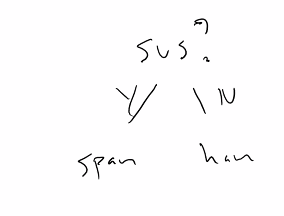 sus?
Y N
span han